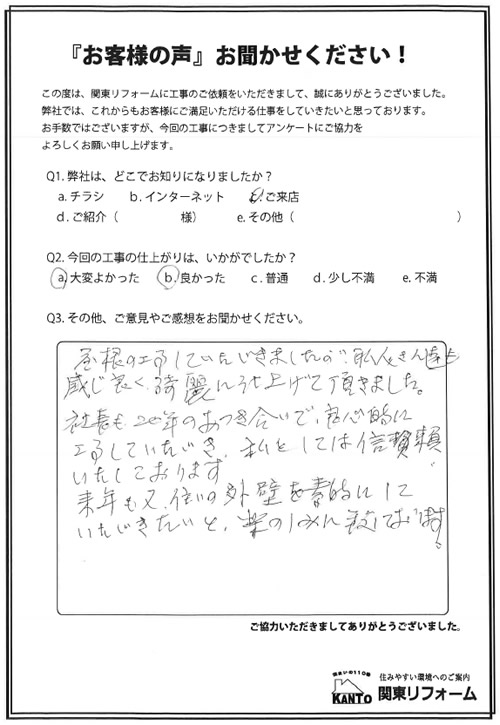 『お客様の声』お聞かせください！
この度は、関東リフォームに工事のご依頼をいただきまして、誠にありがとうございました。
弊社では、これからもお客様にご満足いただける仕事をしていきたいと思っております。
お手数ではございますが、今回の工事につきましてアンケートにご協力を
よろしくお願い申し上げます。
Q1. 弊社は、どこでお知りになりましたか？
a. チラシ　b. インターネット　c. ご来店
d. ご紹介（　　　　　様）　e. その他（　　　　　　　　　　）
Q2. 今回の工事の仕上がりは、いかがでしたか？
a. 大変よかった　b. 良かった　c. 普通　d. 少し不満　e. 不満
Q3. その他、ご意見やご感想をお聞かせください。
屋根の工事していただきましたが、職人さん達も
感じ良く、綺麗に仕上げて頂きました。
社長も20年のおつき合いで、良心的に
工事していただき、私としては信頼
いたしております
来年も又、住いの外壁を素的にして
いただきたいと、楽しみに致しております。
ご協力いただきましてありがとうございました。
住まいの110番
KANTO
住みやすい環境へのご案内
関東リフォーム